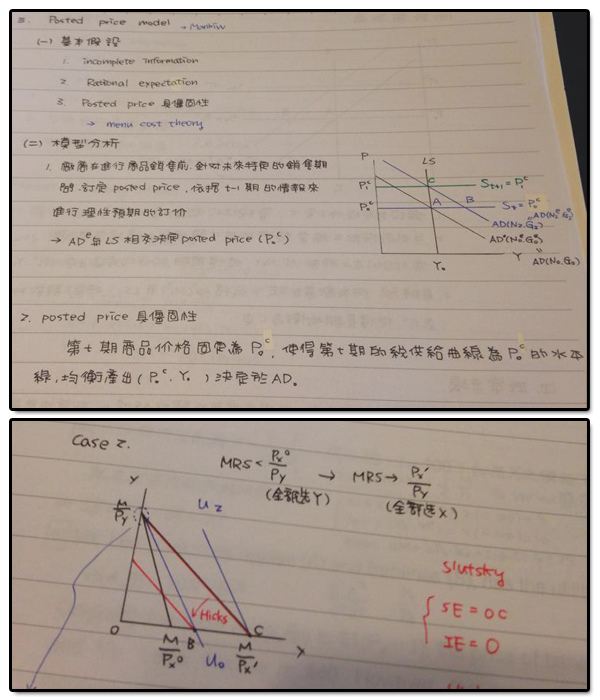 三. Posted price model → Mankiw
(一) 基本假設
1. incomplete information
2. Rational expectation
3. Posted price 具僵固性
→ menu cost theory
(二) 模型分析
1. 廠商在進行商品銷售前, 針對未來特定的銷售期
間, 訂定 posted price, 依據 t-1 期的情報來
進行理性預期的訂價
→ ADᵉ與 LS 相交決定 posted price (P₀ᶜ)
P
LS
P₁ᶜ
C
Sₜ₊₁ = P₁ᶜ
P₀ᶜ
A
B
Sₜ = P₀ᶜ
AD(N₂, G₂)
ADᵉ(N₀ᵉ, G₀ᵉ)
Y₀
Y
AD(N₀, G₀)
2. posted price 具僵固性
第 t 期商品價格固定為 P₀ᶜ, 使得第 t 期的總供給曲線為 P₀ᶜ 的水平
線, 均衡產出 (P₀ᶜ, Y₀) 決定於 AD。
Case 2.
MRS < Pₓ⁰/Py → MRS > Pₓ'/Py
(全部選Y) (全部選X)
Y
M/Py
U₂
Hicks
Slutsky
SE = OC
IE = 0
O
M/Pₓ⁰
B
U₀
M/Pₓ'
C
X